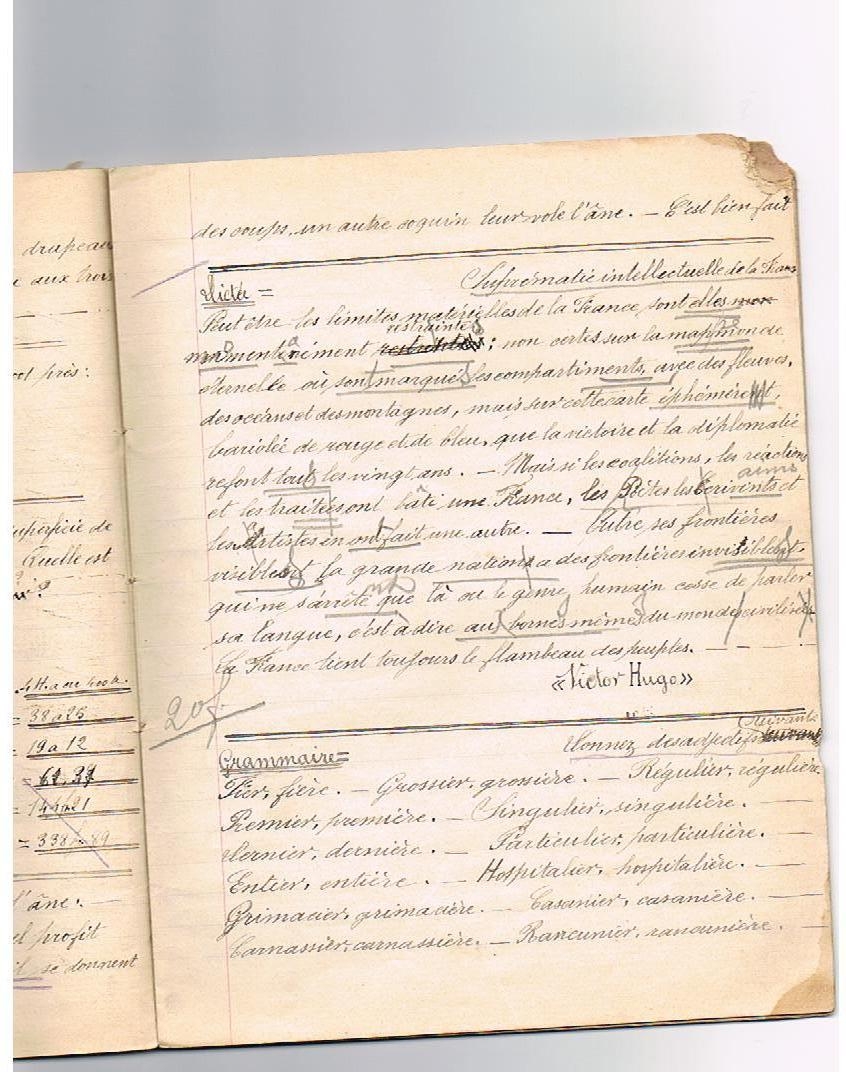 drapeau
aux trois
près:
superficie de
Quelle est
38 a 26
= 19 a 12
= 338 89
l'âne:
el profit
il se donnent
des coups, un autre coquin leur vole l'âne. — C'est bien fait
Dictée =
Suprématie intellectuelle de la Fran
Peut être les limites matérielles de la France sont elles mon
momentanément restraintes ; non certes sur la mappemonde
éternelle où sont marqués les compartiments, avec des fleuves,
des océans et des montagnes, mais sur cette carte éphémère,
bariolée de rouge et de bleu, que la victoire et la diplomatie
refont tout les vingt ans. — Mais si les coalitions, les réactions
et les traités ont bâti une France, les Poètes les Ecrivains et
les Artistes en ont fait une autre. — Outre ses frontières
visibles la grande nation a des frontières invisibles,
qui ne s'arrête que là ou le genre humain cesse de parler
sa langue, c'est à dire aux bornes mêmes du monde civilisé
La France tient toujours le flambeau des peuples. — — —
«Victor Hugo»
20f
Grammaire =
Donnez des adjectifs suivants
Fier, fière. — Grossier, grossière. — Régulier, régulière.
Premier, première. — Singulier, singulière. —
Dernier, dernière. — Particulier, particulière. —
Entier, entière. — Hospitalier, hospitalière. —
Grimacier, grimacière. — Casanier, casanière. —
Carnassier, carnassière. — Rancunier, rancunière. —